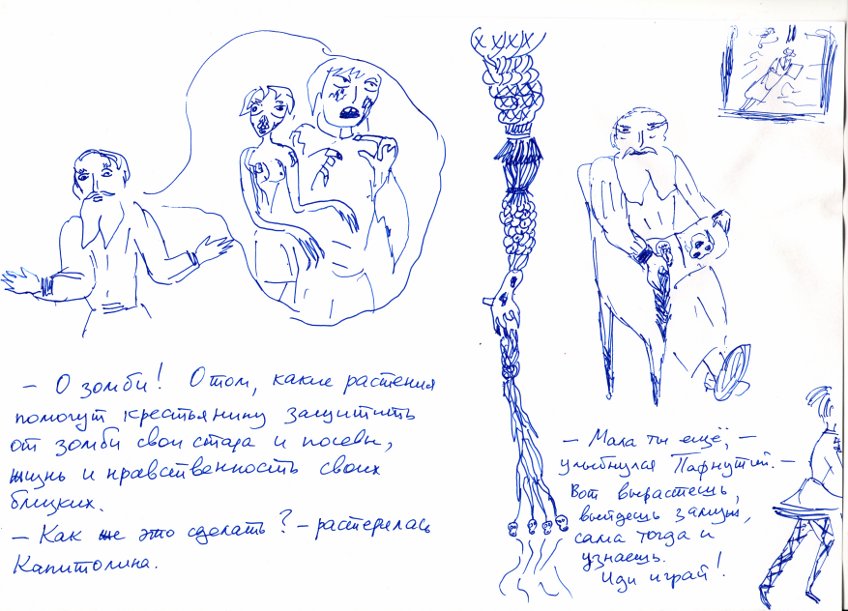 — О зомби! О том, какие растения
помогут крестьянину защитить
от зомби свои стада и посевы,
жизнь и нравственность своих
близких.
— Как же это сделать? — растерялась
Капитолина.
— Мала ты ещё, —
улыбнулся Пафнутий. —
Вот вырастешь,
выйдешь замуж,
сама тогда и
узнаешь.
Иди играй!